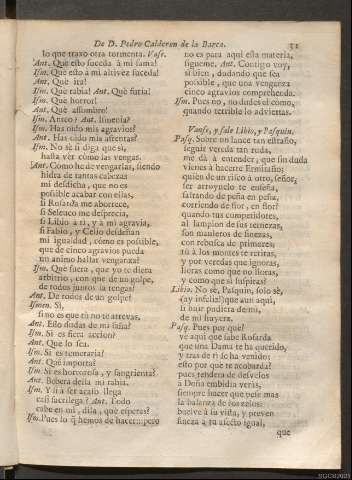 De D. Pedro Calderon de la Barca.
lo que traxo otra tormenta. Vase.
Ant. Què esto suceda à mi fama!
Ism. Què esto à mi altivez suceda!
Ant. Què ira!
Ism. Què rabia! Ant. Què furia!
Ism. Què horror!
Ant. Què assombro!
Ism. Anteo? Ant. Ismenia?
Ism. Has oido mis agravios?
Ant. Has oido mis afrentas?
Ism. No sè si diga què si,
hasta vèr como las vengas.
Ant. Còmo he de vengarlas, siendo
hidra de tantas cabezas
mi desdicha, que no es
posible acabar con ellas,
si Rosarda me aborrece,
si Seleuco me desprecia,
si Libio à ti, y à mi agravia,
si Fabio, y Celio desdeñan
mi igualdad, còmo es posible,
que de cinco agravios pueda
un animo hallar vengarza?
Ism. Què fuera, que yo te diera
arbitrio, con que de un golpe,
de todos juntos te vengas?
Ant. De todos de un golpe?
Ismen. Si,
si no es que tù no te atrevas.
Ant. Esso dudas de mi saña?
Ism. Si es fiera accion?
Ant. Que lo sea.
Ism. Si es temeraria?
Ant. Què importa?
Ism. Si es horrorosa, y sangrienta?
Ant. Bobera serà mi rabia.
Ism. Y si à ser acaso llega
casi sacrilega? Ant. Todo
cabe en mi, dila, què esperas?
Ism. Pues lo q̃ hemos de hacer::: pero
no es para aqui esta materia,
sigueme. Ant. Contigo voy,
si bien, dudando que sea
posible, que una venganza
cinco agravios comprehenda.
Ism. Pues no, no dudes el còmo,
quando terrible lo adviertas.
Vanse, y sale Libio, y Pasquin.
Pasq. Sobre un lance tan estraño,
seguir vereda tan ruda,
me dà à entender, que sin duda
vienes à hacerte Ermitaño;
quien de un risco à otro, señor,
ser arroyuelo te enseña,
saltando de peña en peña,
corriendo de flor, en flor?
quando tus competidores,
al lampion de sus ternezas,
son muleros de finezas,
con rebusca de primeres;
tù à los montes te retiras,
y por veredas que ignoras,
lloras como que no lloras,
y como que si suspiras?
Libio. No sè, Pasquin, solo sè,
(ay infeliz!) que aun aqui,
si huir pudiera de mi,
de mi huyera.
Pasq. Pues por què?
vè aqui que sabe Rosarda
que una Dama te ha querido,
y tras de tì se ha venido:
esto por què te acobarda?
pues tendera de desvelos
à Doña embidia veràs,
siempre hacer que pese mas
la balanza de los zelos:
buelve à su vista, y preven
fineza à tu afecto igual,
que